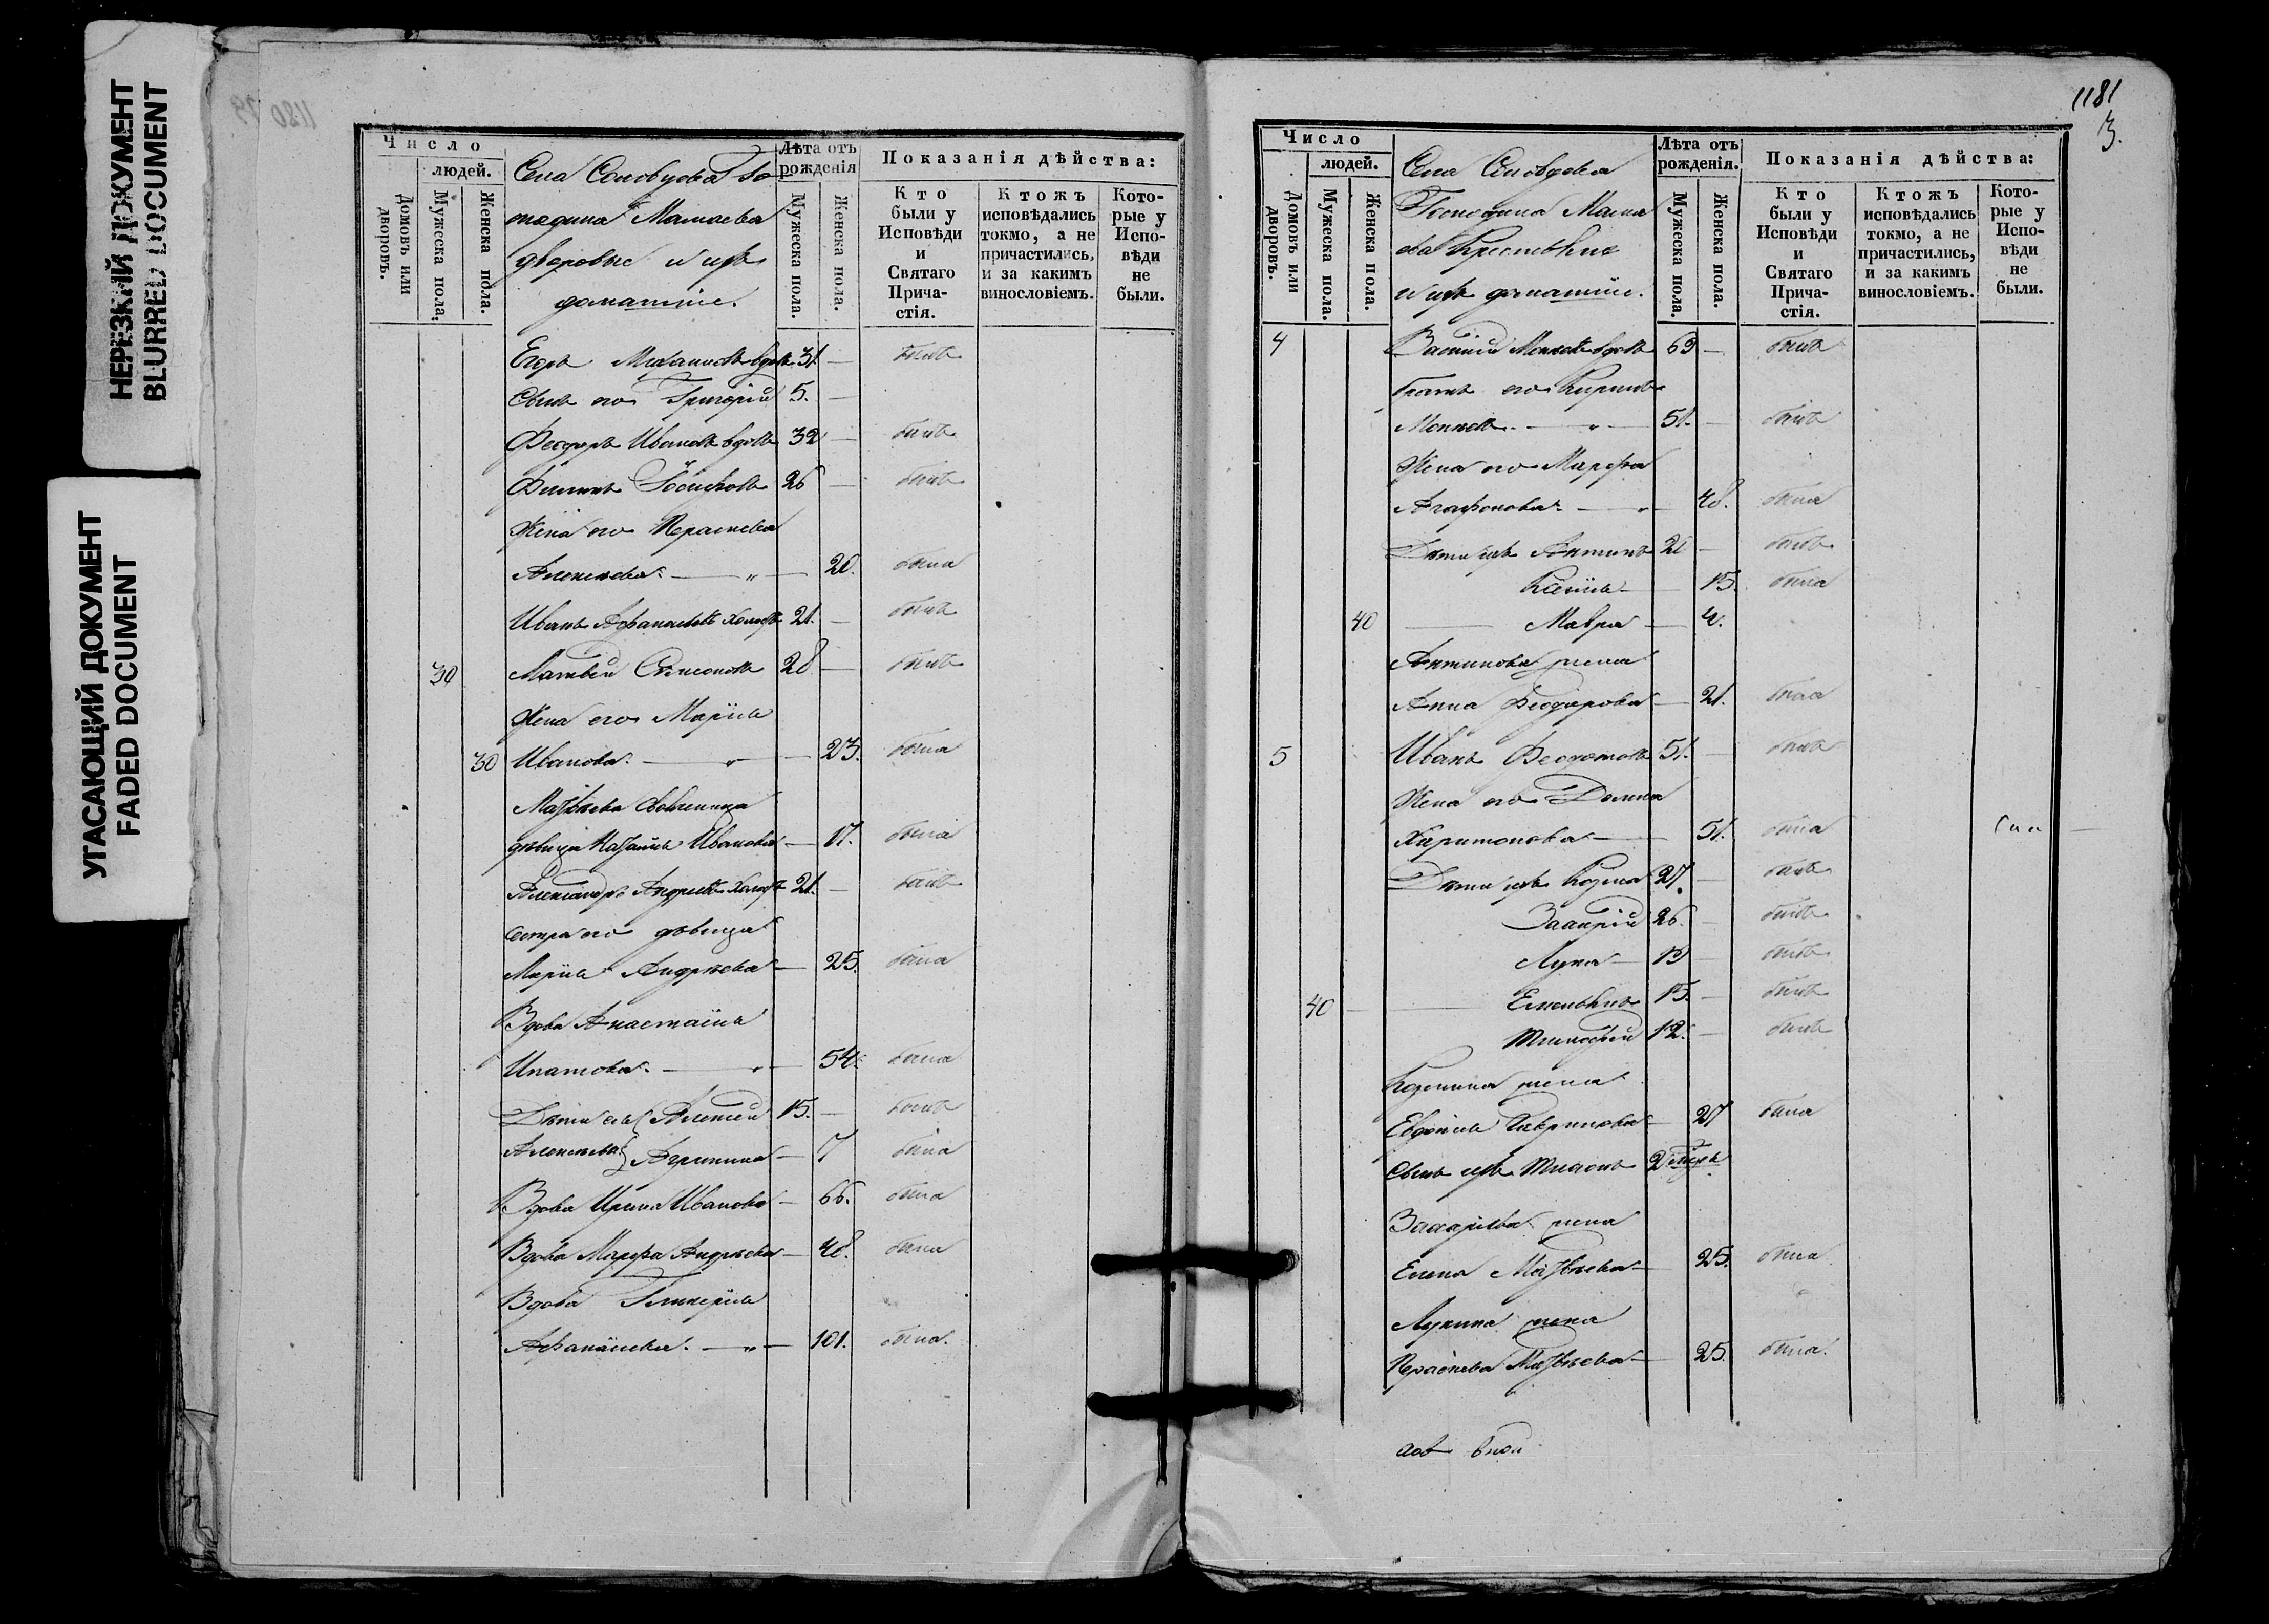 НЕРЕЗКИЙ ДОКУМЕНТ
BLURRED DOCUMENT
УГАСАЮЩИЙ ДОКУМЕНТ
FADED DOCUMENT
Число
людей.
Домовъ или дворовъ.
Мужеска пола.
Женска пола.
Села Соловцова Го
сподина Мамаева
дворовые и ихъ
домашніе.
Лѣта отъ рожденія
Мужеска пола.
Женска пола.
Показанія дѣйства:
Кто были у Исповѣди и Святаго Причастія.
Ктожъ исповѣдались токмо, а не причастились, и за какимъ винословіемъ.
Которые у Исповѣди не были.
Егоръ вдовъ 31. — былъ
Сынъ его Григорій 5. —
Феодоръ Ивановъ вдовъ 32 — былъ
Филипъ Іосифовъ 26 — былъ
Жена его Параскева
Алексѣева. — " — 20. была
Иванъ Афанасьевъ холостъ 21. — былъ
30 Матвей Симеоновъ 28 — былъ
Жена его Марія
30 Иванова. — " — 23. была
Матвѣева
дѣвица Наталія Иванова — 17. была
Александръ Андреевъ холостъ 21. — былъ
сестра его дѣвица
Марія Андрѣева — 25. была
Вдова Анастасія
Ипатова. — " — 54. была
Дѣти ея Алексей 15. — былъ
Алексѣевы Агрипина — 7 была
Вдова Ирина Иванова — 66. была
Вдова Марфа Андрѣева — 48. была
Вдова Гликерія
Афанасіева. — " — 101. была.
1181
3.
Число
людей.
Домовъ или дворовъ.
Мужеска пола.
Женска пола.
Села Соловцова
Господина Мама
ева Крестьяне
и ихъ домашніе.
Лѣта отъ рожденія.
Мужеска пола.
Женска пола.
Показанія дѣйства:
Кто были у Исповѣди и Святаго Причастія.
Ктожъ исповѣдались токмо, а не причастились, и за какимъ винословіемъ.
Которые у Исповѣди не были.
4 вдовъ 69 — былъ
Братъ его Кирилъ
— " — 51. — былъ
Жена его Марфа
Агафонова. — " — 48. была
Дѣти ихъ Антипъ 20 — былъ
Ксенія — 15. была
40 — Мавра — 4.
Антипова жена
Анна Феодорова — 21. была
5 Иванъ Феодотовъ 51. — былъ
Жена его Домна
Харитонова — 51. была
Дѣти ихъ Козма 27. — былъ
Захарій 26. — былъ
Лука — былъ
40 — Емельянъ 15. — былъ
Тимофей 12. — былъ
Козмина жена
Евдокія Гаврилова — 27 была
Сынъ ихъ 2
Захарьева жена
Елена Матвѣева — 25. была
Лукина жена
Параскева Матвѣева — 25. была.